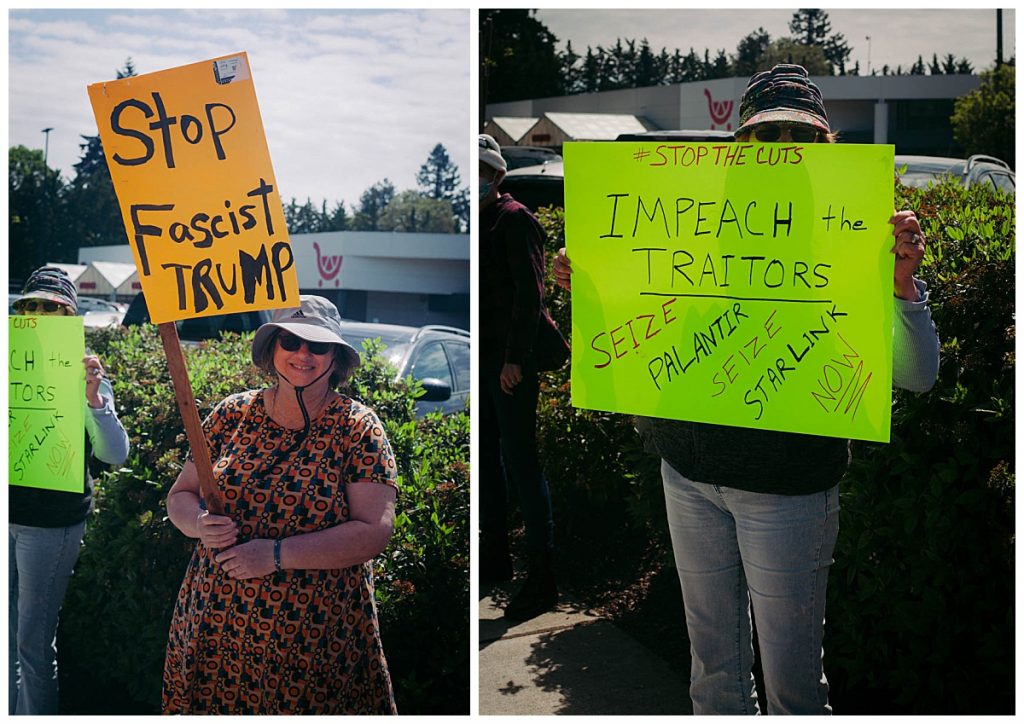 Stop
Fascist
TRUMP
CUTS
CH the
TORS
SEIZE
STARLINK
NOW
#STOP THE CUTS
IMPEACH the
TRAITORS
SEIZE
PALANTIR
SEIZE
STARLINK
NOW